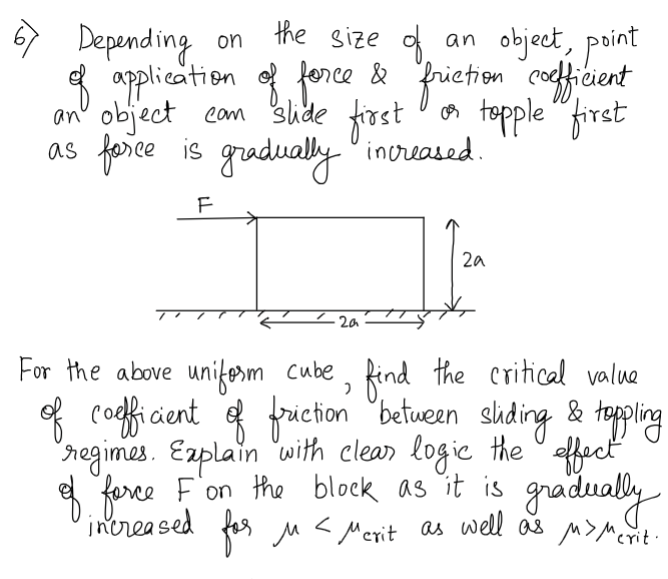 6) Depending on the size of an object, point
of application of force & friction coefficient
an object can slide first or topple first
as force is gradually increased.
F
2a
2a
For the above uniform cube, find the critical value
of coefficient of friction between sliding & toppling
regimes. Explain with clear logic the effect
of force F on the block as it is gradually
increased for μ < μcrit as well as μ>μcrit.